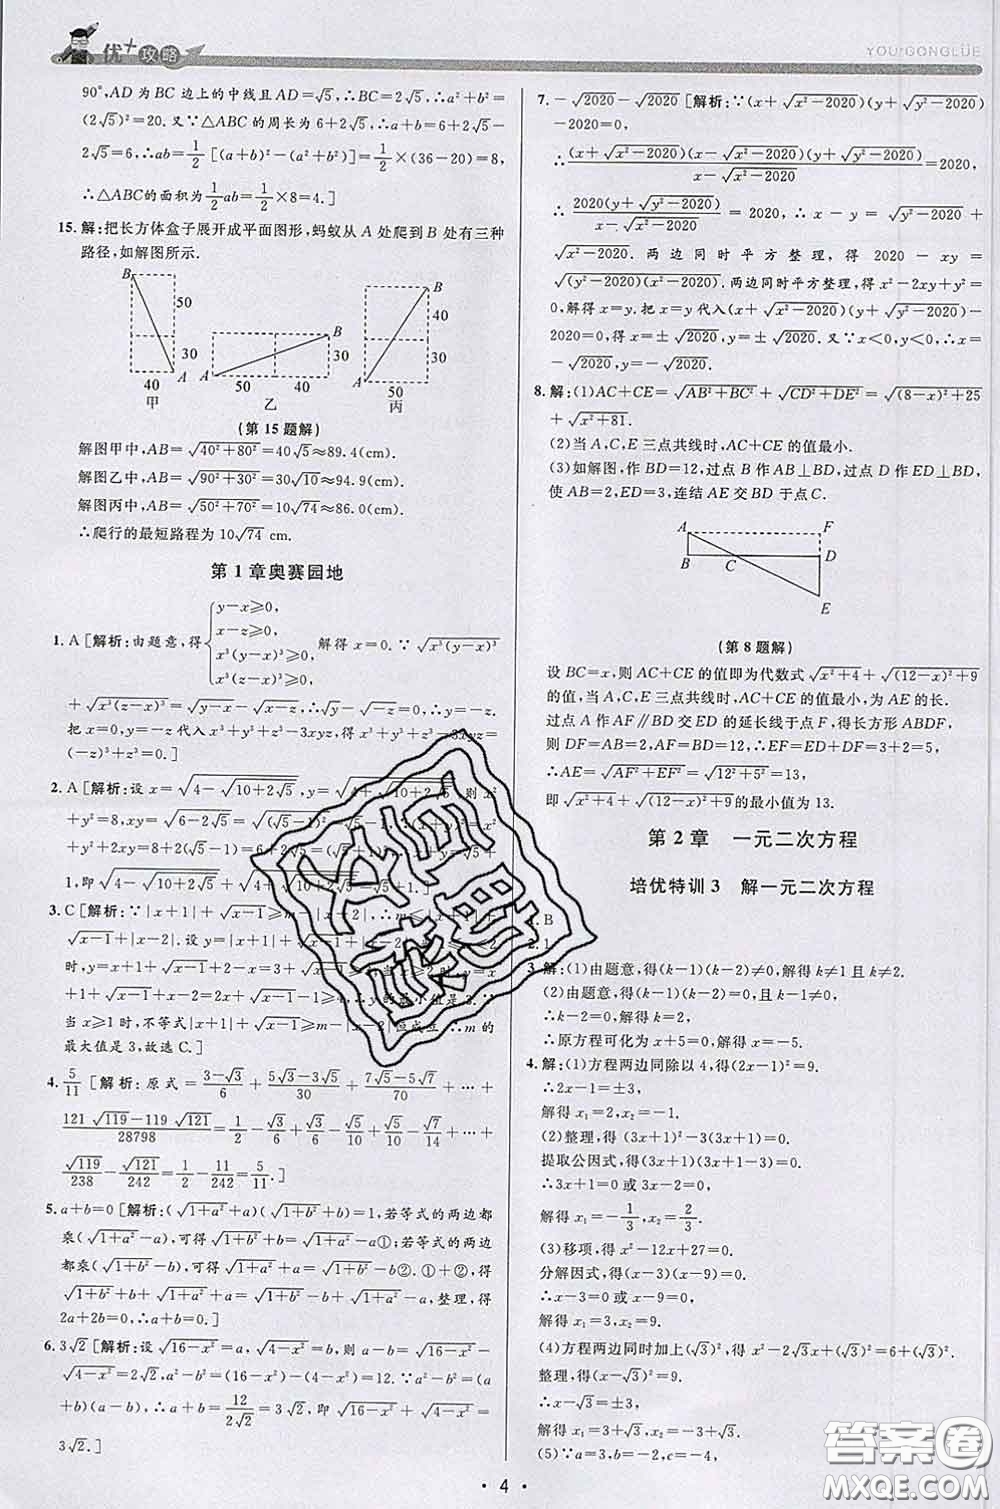 优+攻略
YOU+GONGLÜE
90°,AD为BC边上的中线且AD=√5,∴BC=2√5,∴a²+b²=
(2√5)²=20.又∵△ABC的周长为6+2√5,∴a+b=6+2√5-
2√5=6,∴ab=1/2[(a+b)²-(a²+b²)]=1/2×(36-20)=8,
∴△ABC的面积为1/2ab=1/2×8=4.]
15.解:把长方体盒子展开成平面图形,蚂蚁从A处爬到B处有三种
路径,如解图所示.
B 50 30 40 A 甲
B 40 30 A 50 乙
B 40 30 A 50 丙
(第15题解)
解图甲中,AB=√(40²+80²)=40√5≈89.4(cm).
解图乙中,AB=√(90²+30²)=30√10≈94.9(cm).
解图丙中,AB=√(50²+70²)=10√74≈86.0(cm).
∴爬行的最短路程为10√74 cm.
第1章奥赛园地
1. A[解析:由题意,得{y-x≥0, x-z≥0, x³(y-x)³≥0, x³(z-x)³≥0, 解得x=0.∵√(x³(y-x)³)
+√(x³(z-x)³)=√(y-x)-√(x-z),∴√y-√(-z)=0,∴y=-z.
把x=0,y=-z代入x³+y³+z³-3xyz,得x³+y³+z³-3xyz=
(-z)³+z³=0.]
2. A[解析:设x=√(4-√(10+2√5)),y=√(4+√(10+2√5)),则x²+
1,即√(4-√(10+2√5))+√(4+√(10+2√5))=√5+1.]
最大值是3,故选C.]
4. 5/11[解析:原式=(3-√3)/6+(5√3-3√5)/30+(7√5-5√7)/70+…+
(121√119-119√121)/28798=1/2-√3/6+√3/6-√5/10+√5/10-√7/14+…+
√119/238-√121/242=1/2-11/242=5/11.]
5. a+b=0[解析:(√(1+a²)+a)(√(1+b²)+b)=1,若等式的两边都
乘(√(1+a²)-a),则√(1+b²)+b=√(1+a²)-a①;若等式的两边
都乘(√(1+b²)-b),则√(1+a²)+a=√(1+b²)-b②.①+②,得
√(1+b²)+b+√(1+a²)+a=√(1+a²)-a+√(1+b²)-b,整理,得
2a+2b=0,∴a+b=0.]
6. 3√2[解析:设√(16-x²)=a,√(4-x²)=b,∵√(16-x²)-
√(4-x²)=2√2,a²-b²=(16-x²)-(4-x²)=12.∵a²-b²=
(a+b)(a-b),∴a+b=12/(2√2)=3√2,即√(16-x²)+√(4-x²)=
3√2.]
7. -√2020-√2020[解析:∵(x+√(x²-2020))(y+√(y²-2020))
-2020=0,
∴(x+√(x²-2020))(x-√(x²-2020))(y+√(y²-2020))/(x-√(x²-2020))=2020,
∴2020(y+√(y²-2020))/(x-√(x²-2020))=2020,∴x-y=√(y²-2020)+
√(x²-2020).两边同时平方整理,得2020-xy=
√((y²-2020)(x²-2020)).两边同时平方整理,得x²-2xy+y²=
0,解得x=y.把x=y代入(x+√(x²-2020))(y+√(y²-2020))
-2020=0,得x=±√2020,y=±√2020.又∵x≠√2020,∴x=
-√2020,y=-√2020.]
8.解:(1)AC+CE=√(AB²+BC²)+√(CD²+DE²)=√((8-x)²+25)
+√(x²+81).
(2)当A,C,E三点共线时,AC+CE的值最小.
(3)如解图,作BD=12,过点B作AB⊥BD,过点D作ED⊥BD,
使AB=2,ED=3,连结AE交BD于点C.
A F B C D E
(第8题解)
设BC=x,则AC+CE的值即为代数式√(x²+4)+√((12-x)²+9)
的值,当A,C,E三点共线时,AC+CE的值最小,为AE的长.
过点A作AF∥BD交ED的延长线于点F,得长方形ABDF,
则DF=AB=2,AF=BD=12,∴EF=ED+DF=3+2=5,
∴AE=√(AF²+EF²)=√(12²+5²)=13,
即√(x²+4)+√((12-x)²+9)的最小值为13.
第2章 一元二次方程
培优特训3 解一元二次方程
1. B
2. 1
3.解:(1)由题意,得(k-1)(k-2)≠0,解得k≠1且k≠2.
(2)由题意,得(k-1)(k-2)=0,且k-1≠0,
∴k-2=0,解得k=2,
∴原方程可化为x+5=0,解得x=-5.
4.解:(1)方程两边同除以4,得(2x-1)²=9.
∴2x-1=±3,
解得x₁=2,x₂=-1.
(2)整理,得(3x+1)²-3(3x+1)=0.
提取公因式,得(3x+1)(3x+1-3)=0.
∴3x+1=0或3x-2=0,
解得x₁=-1/3,x₂=2/3.
(3)移项,得x²-12x+27=0.
分解因式,得(x-3)(x-9)=0.
∴x-3=0或x-9=0,
解得x₁=3,x₂=9.
(4)方程两边同时加上(√3)²,得x²-2√3x+(√3)²=6+(√3)².
整理,得(x-√3)²=9.
∴x-√3=±3.
解得x₁=3+√3,x₂=-3+√3.
(5)∵a=2,b=-5,c=-4,
· 4 ·
答案圈
MXQE.COM